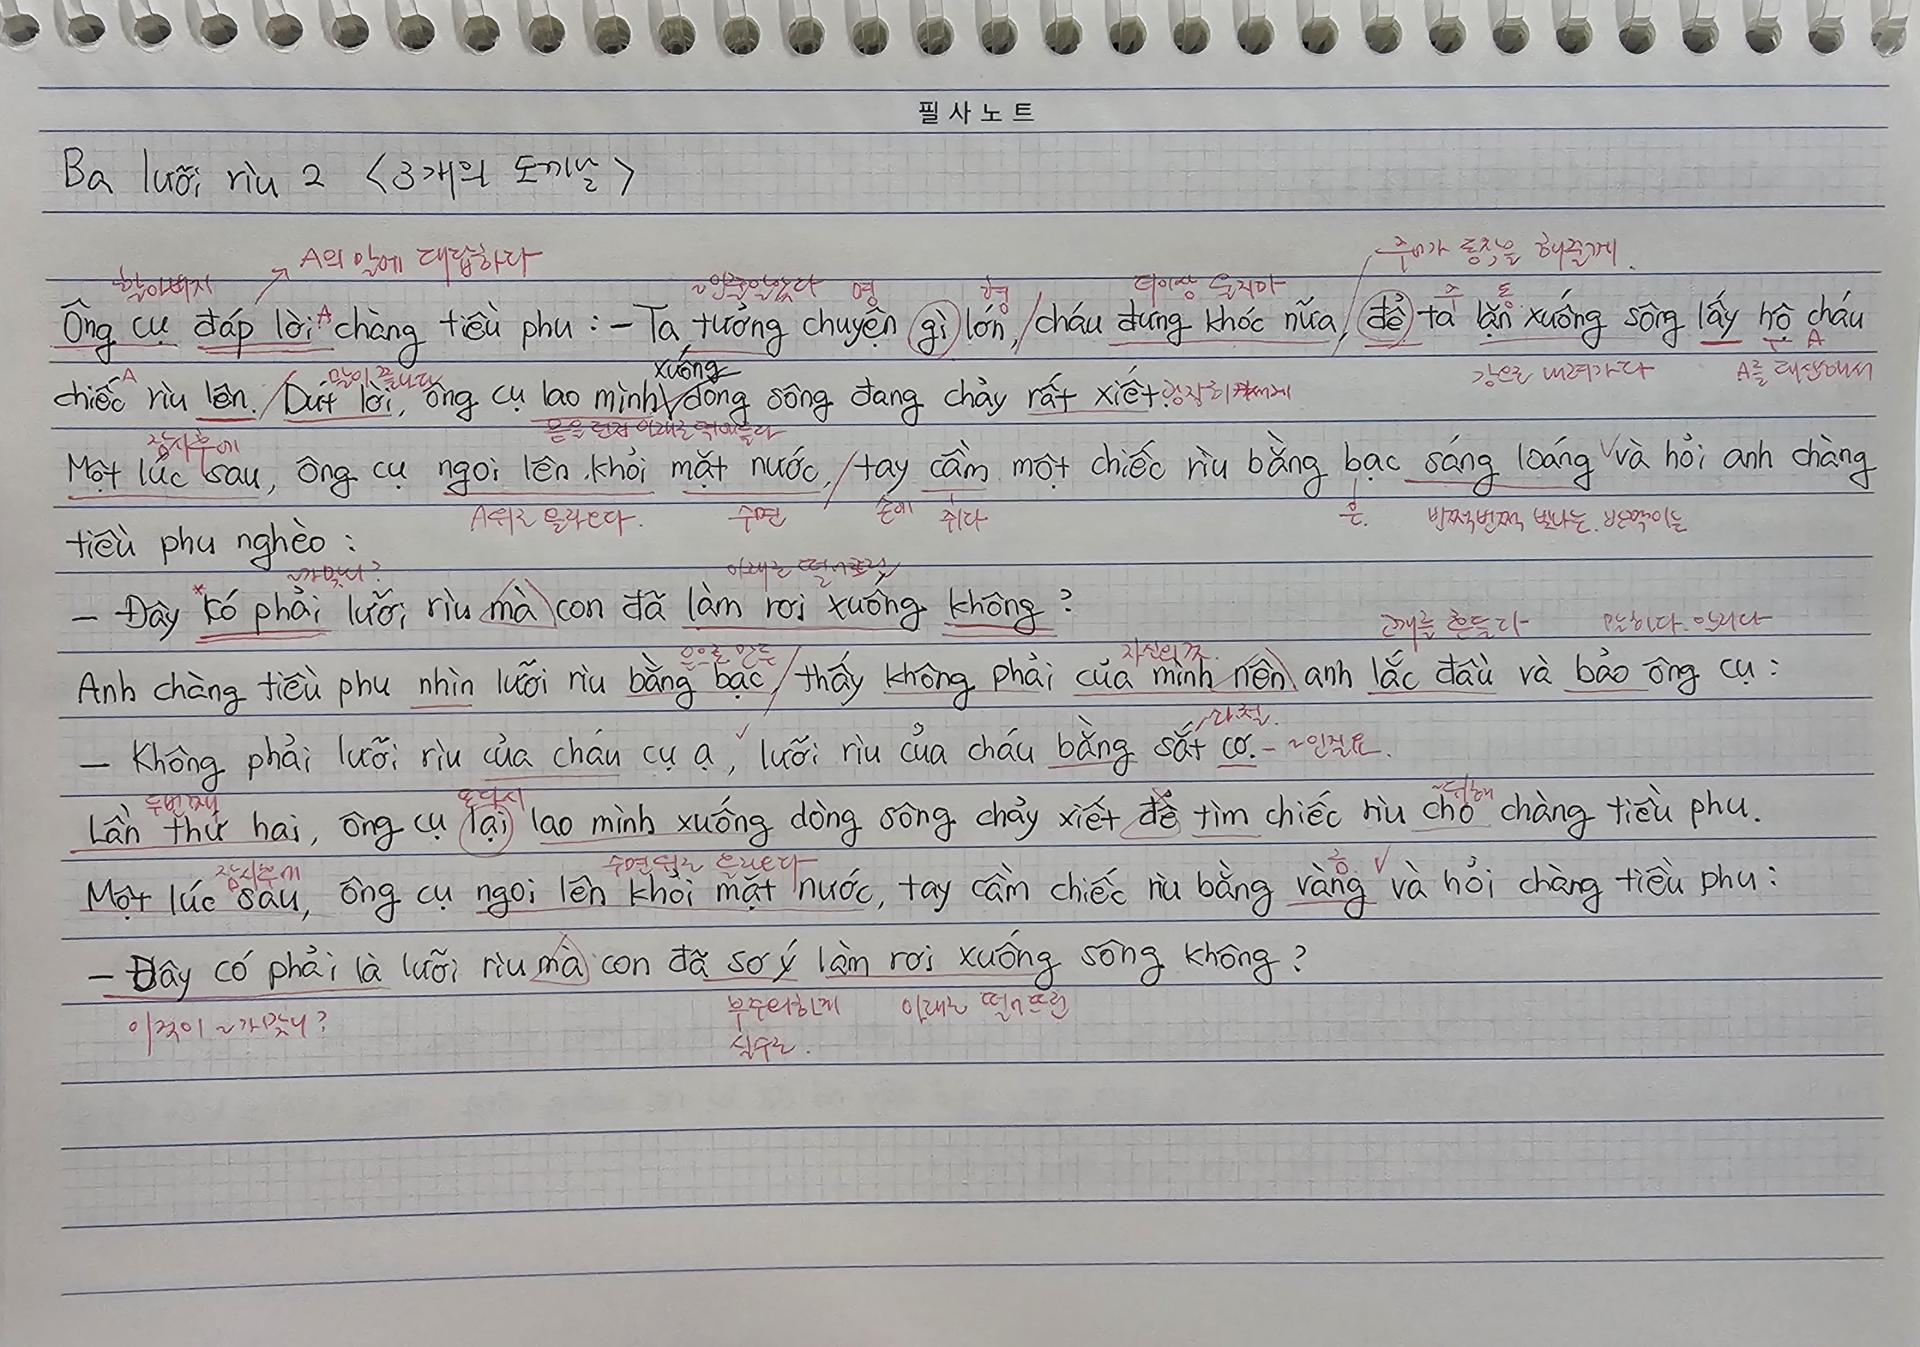 필사노트
Ba lưỡi rìu 2 <3개의 도끼날>
A의 말에 대답하다
주어가 동작을 해줄게.
할아버지 ~인줄알았다 명 형 더이상 울지마 주 동
Ông cụ đáp lời A chàng tiều phu : - Ta tưởng chuyện gì lớn, / cháu đừng khóc nữa, / để ta lặn xuống sông lấy hộ cháu
강으로 내려가다 A를 대신해서
말이 끝나다 xuống
chiếc A rìu lên. / Dứt lời, ông cụ lao mình dòng sông đang chảy rất xiết. 굉장히 거세게
몸을 던져 아래로 뛰어들다
잠시후에
Một lúc sau, ông cụ ngoi lên khỏi mặt nước, / tay cầm một chiếc rìu bằng bạc sáng loáng và hỏi anh chàng
A위로 올라오다. 수면 손에 쥐다 은. 반짝반짝 빛나는. 번쩍이는
tiều phu nghèo :
~가 맞니? 아래로 떨어뜨린
- Đây *có phải lưỡi rìu mà con đã làm rơi xuống không ?
고개를 흔들다 말하다. 알리다
은으로 만든 자신의 것.
Anh chàng tiều phu nhìn lưỡi rìu bằng bạc, / thấy không phải của mình nên anh lắc đầu và bảo ông cụ :
- Không phải lưỡi rìu của cháu cụ ạ, lưỡi rìu của cháu bằng sắt cơ. - ~인걸요.
두번째 또다시 ~위해
Lần thứ hai, ông cụ lại lao mình xuống dòng sông chảy xiết để tìm chiếc rìu cho chàng tiều phu.
잠시후에 수면위로 올라오다 금
Một lúc sau, ông cụ ngoi lên khỏi mặt nước, tay cầm chiếc rìu bằng vàng và hỏi chàng tiều phu :
- Đây có phải là lưỡi rìu mà con đã sơ ý làm rơi xuống sông không ?
이것이 ~가 맞니? 부주의하게 아래로 떨어뜨린
실수로.